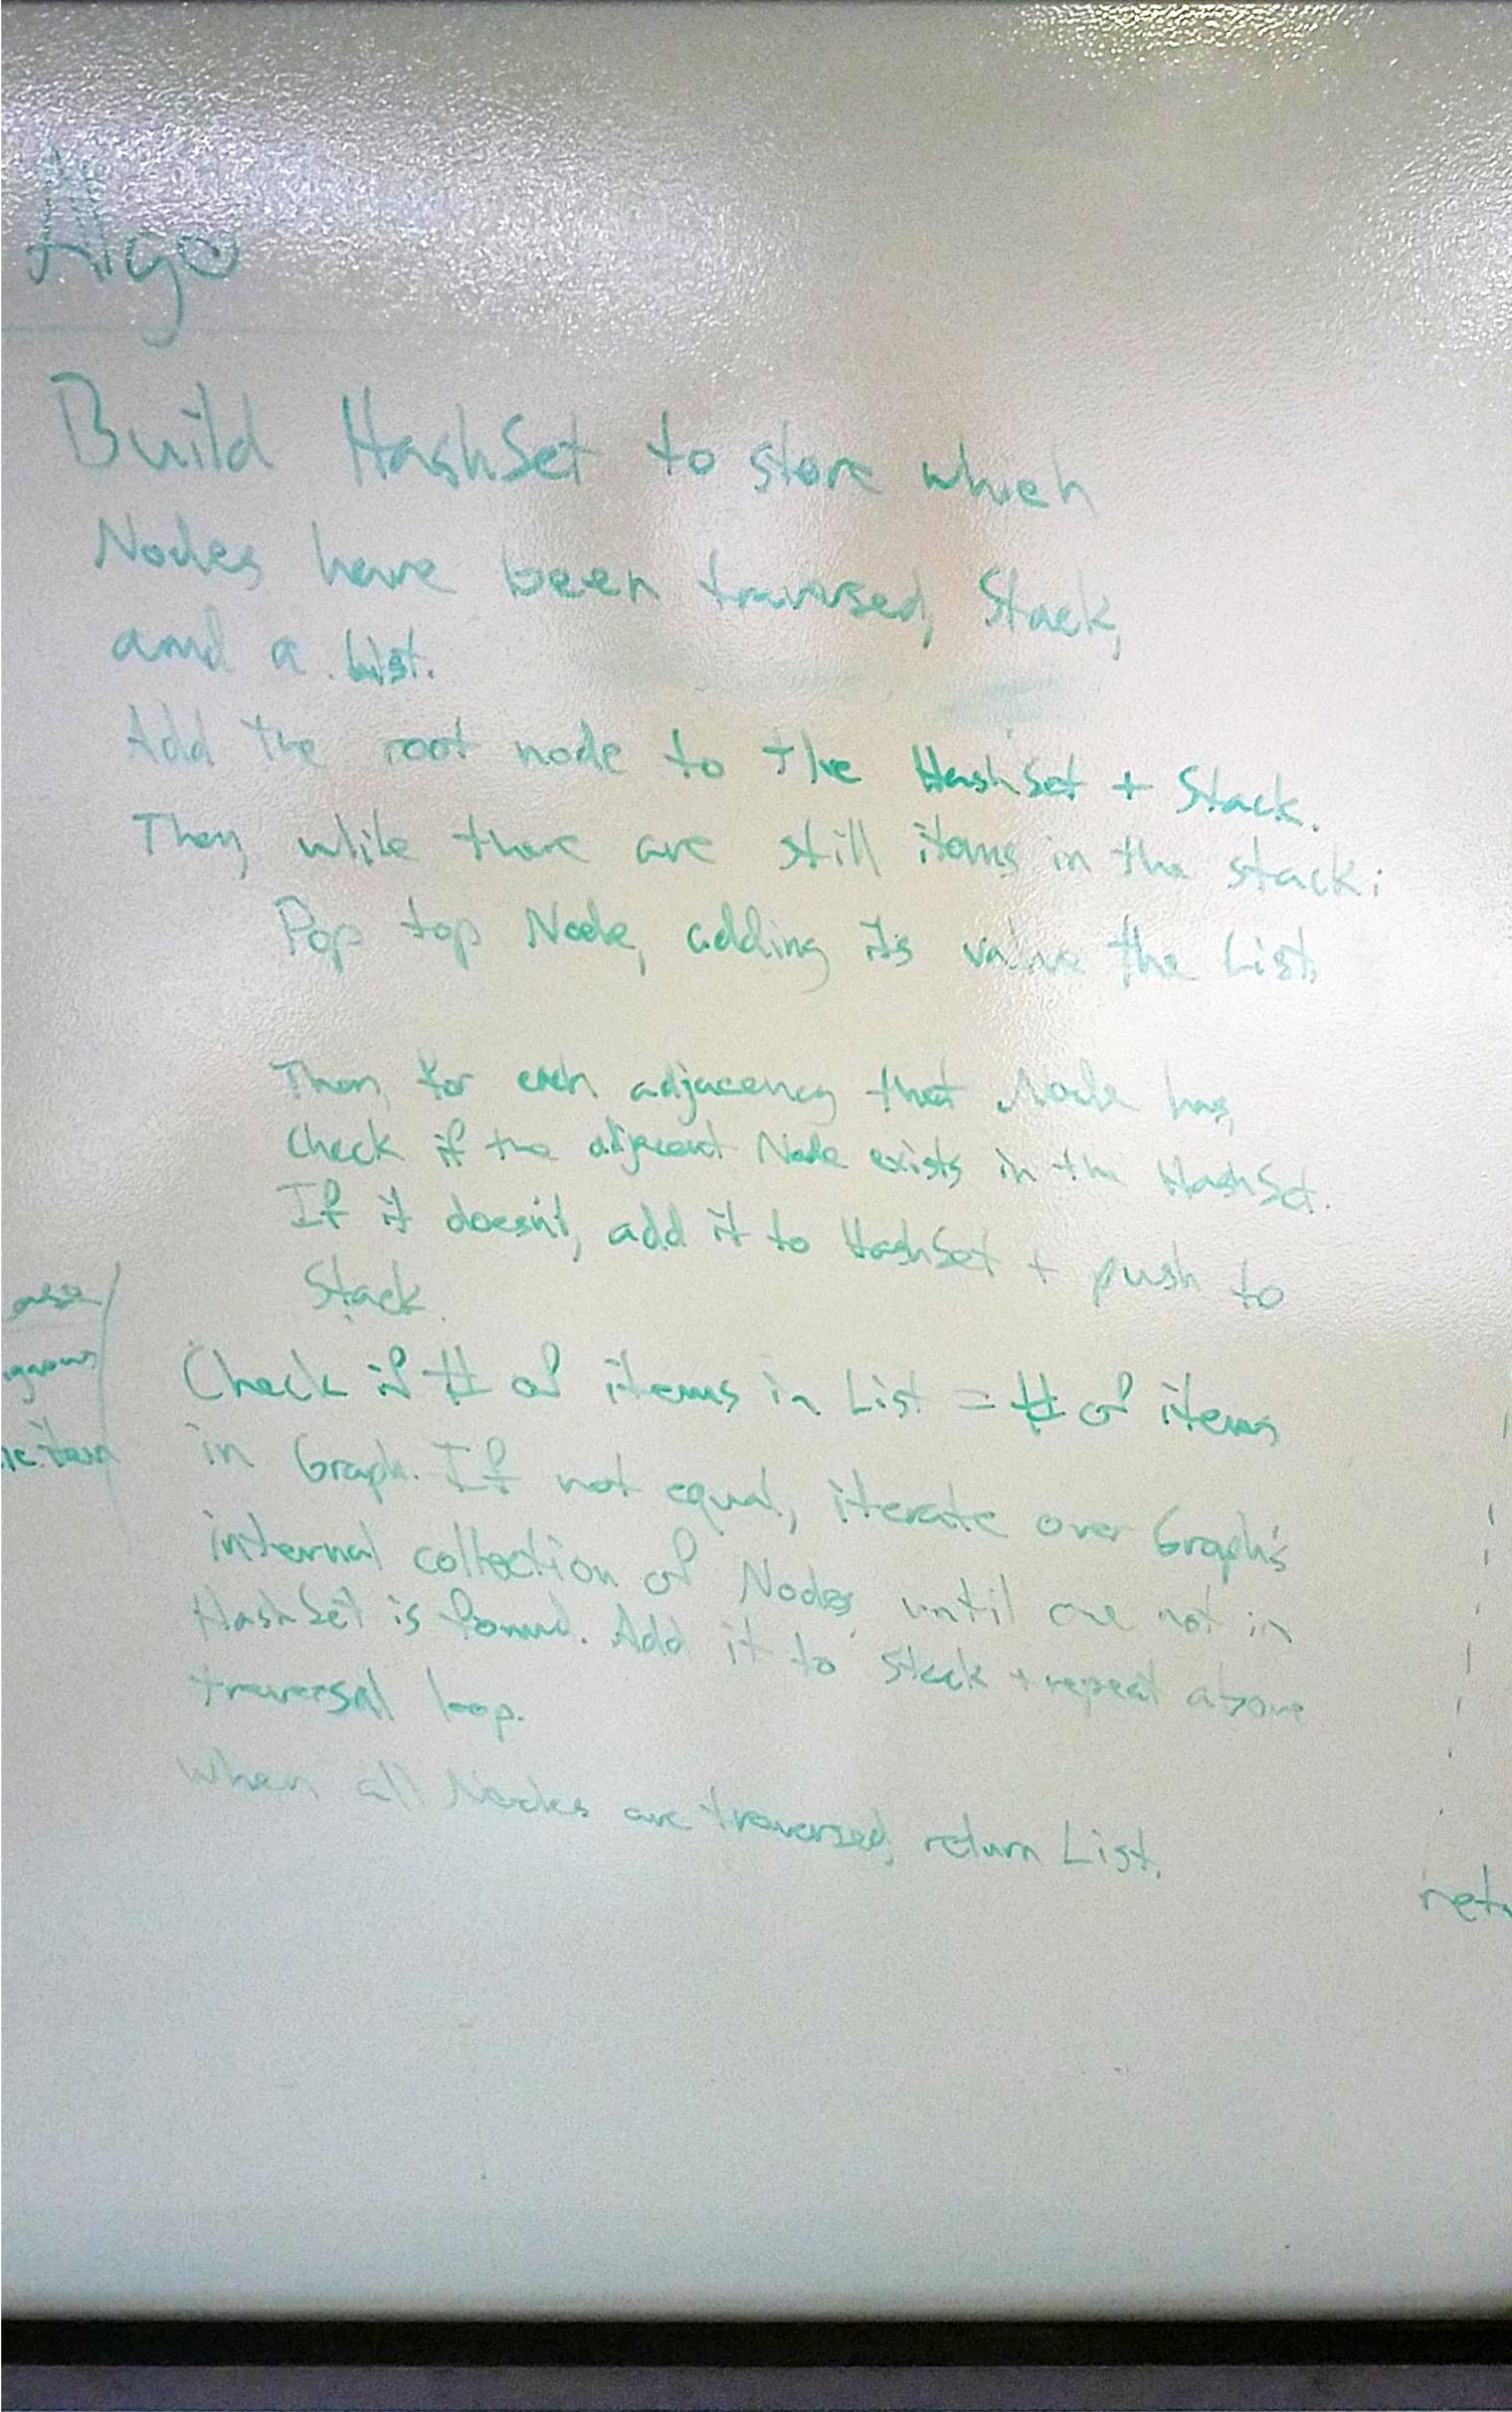 Algo
Build HashSet to store which
Nodes have been traversed, Stack,
and a List.
Add the root node to the HashSet + Stack.
Then, while there are still items in the stack:
Pop top Node, adding its value the List.
Then, for each adjacency that Node has,
check if the adjacent Node exists in the HashSet.
If it doesn't, add it to HashSet + push to
Stack.
Check if # of items in List = # of items
in Graph. If not equal, iterate over Graph's
internal collection of Nodes, until one not in
HashSet is found. Add it to stack + repeat above
traversal loop.
When all Nodes are traversed, return List.
retu